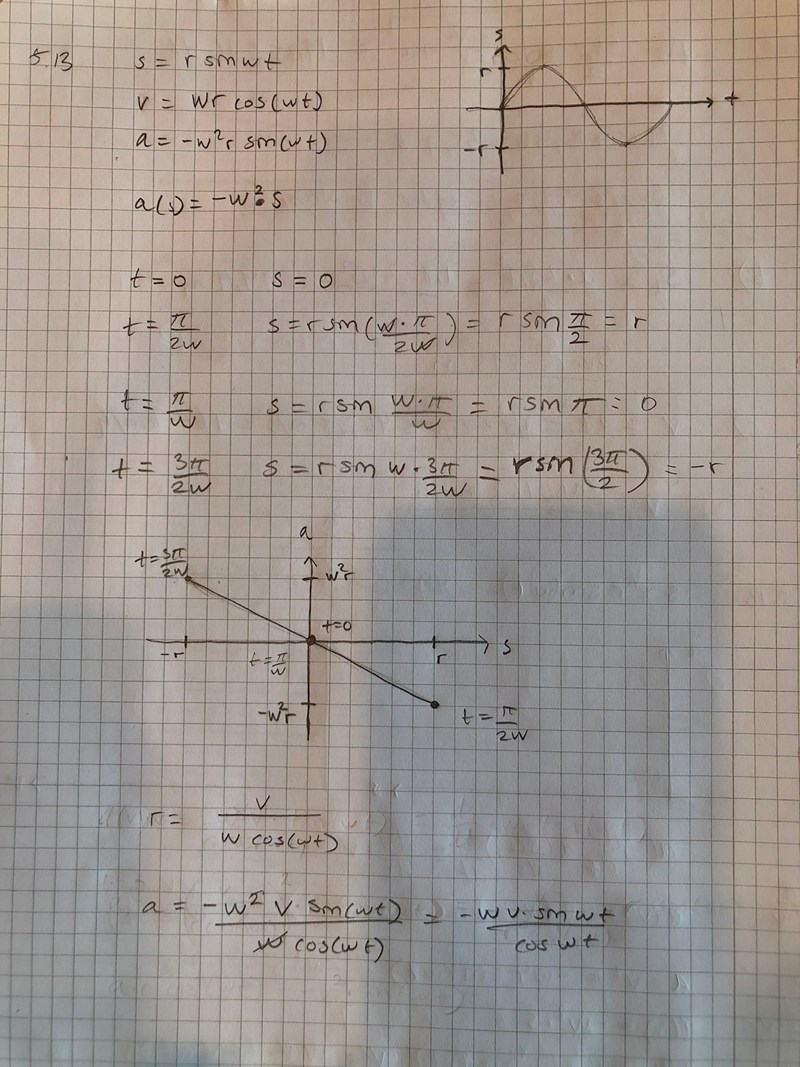 5.13
s = r sin wt
v = wr cos(wt)
a = -w²r sin(wt)
a(s) = -w²·s
s
r
-r
t
t = 0 s = 0
t = π/2w s = r sin(w·π/2w) = r sin π/2 = r
t = π/w s = r sin w·π/w = r sin π = 0
t = 3π/2w s = r sin w·3π/2w = r sin(3π/2) = -r
a
t = 3π/2w
w²r
t=0
-r
t = π/w
r
s
-w²r
t = π/2w
r = v/w cos(wt)
a = -w² v sin(wt)/w cos(wt) = -wv·sin wt/cos wt